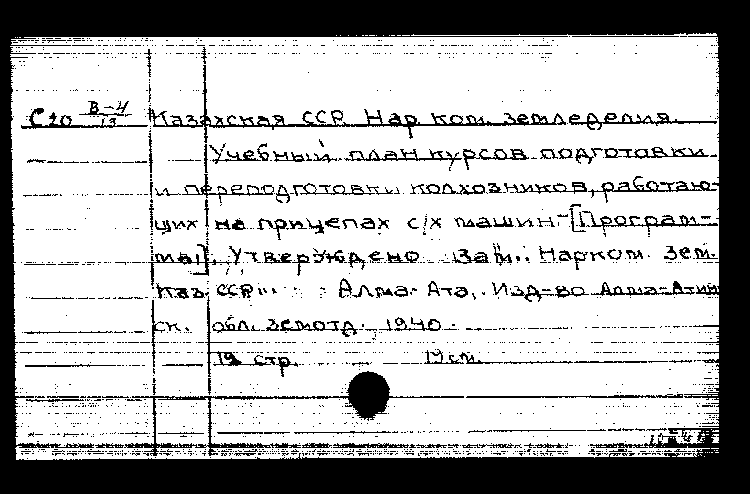 Сto В-4/13 Казахская ССР Нар ком. земледелия.
Учебный план курсов подготовки
и переподготовки колхозников, работаю-
щих на прицепах с/х машин-[Програм-
ма]. Утверждено Зам. Нарком. Зем.
Каз. ССР Алма-Ата, Изд-во Алма-Атин
ск. обл. земотд. 1940.
19 стр. 19 см.